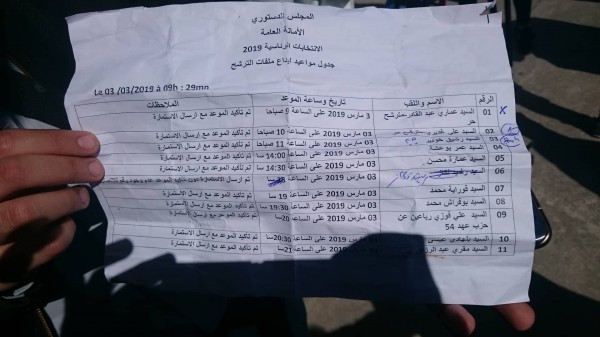 المجلس الدستوري
الأمانة العامة
الانتخابات الرئاسية 2019
جدول مواعيد ايداع ملفات الترشح
Le 03 /03/2019 à 09h : 29mn
الرقم الاسم واللقب تاريخ وساعة الموعد الملاحظات
01 السيد عماري عبد القادر-مترشح حر 3 مارس 2019 على الساعة 9 صباحا تم تأكيد الموعد مع ارسال الاستمارة
02 السيد علي 03 مارس 2019 على الساعة 10 صباحا تم تأكيد الموعد مع ارسال الاستمارة
03 السيد 03 مارس 2019 على الساعة 11 صباحا تم تأكيد الموعد مع ارسال الاستمارة
04 السيد عمر بو عشة 03 مارس 2019 على الساعة 14:00 سا تم تأكيد الموعد مع ارسال الاستمارة
05 السيد عمارة محسن 03 مارس 2019 على الساعة 14:30 سا تم تأكيد الموعد مع ارسال الاستمارة
06 السيد رشيد 03 مارس 2019 على الساعة تم تأكيد الموعد
07 السيد فورالية محمد 03 مارس 2019 على الساعة 19 سا تم تأكيد الموعد مع ارسال الاستمارة
08 السيد بوفراش محمد 03 مارس 2019 على الساعة 19:30 سا تم تأكيد الموعد مع ارسال الاستمارة
09 السيد علي فوزي رباعين عن حزب عهد 54 03 مارس 2019 على الساعة 20سا تم تأكيد الموعد مع ارسال الاستمارة
10 السيد بلهادي عيسى 03 مارس 2019 على الساعة 20:30سا تم تأكيد الموعد مع ارسال الاستمارة
11 السيد مقري عبد الرزاق 03 مارس 2019 على الساعة 21سا تم تأكيد الموعد مع ارسال الاستمارة